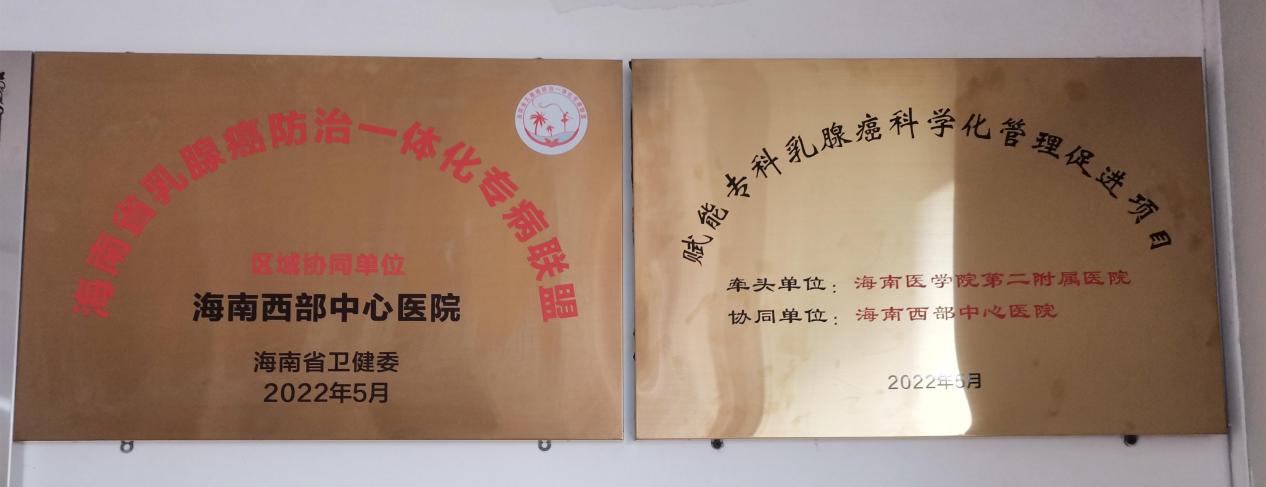 海南省乳腺癌防治一体化专病联盟
区域协同单位
海南西部中心医院
海南省卫健委
2022年5月
赋能专科乳腺癌科学化管理促进项目
牵头单位：海南医学院第二附属医院
协同单位：海南西部中心医院
2022年5月